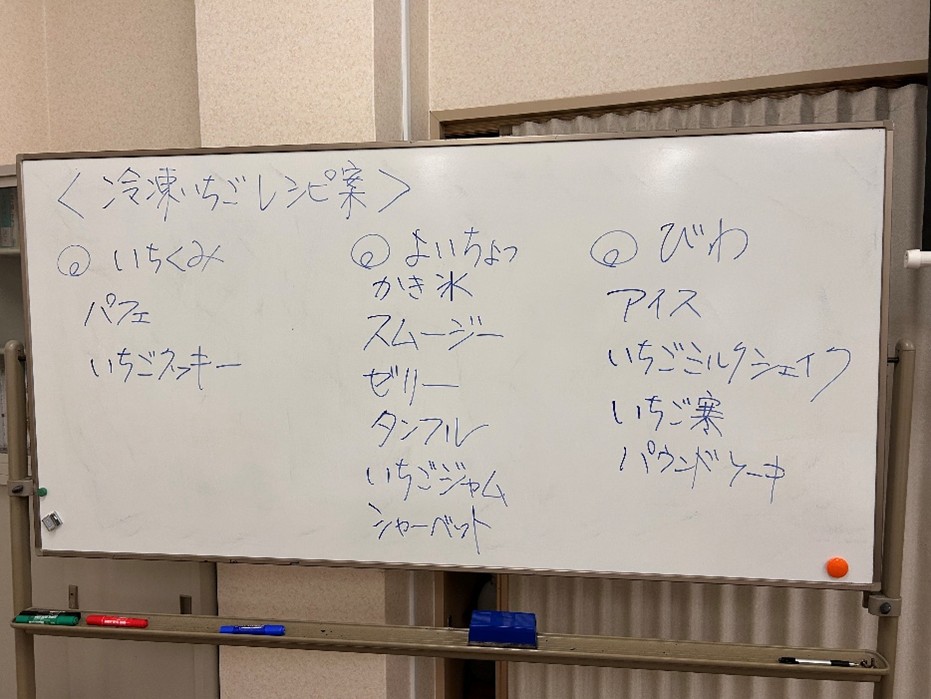 <冷凍いちごレシピ案>
@ いちくみ
パフェ
いちごクッキー
@ よいちょっ
かき氷
スムージー
ゼリー
タンフル
いちごジャム
シャーベット
@ びわ
アイス
いちごミルクシェイク
いちご寒
パウンドケーキ